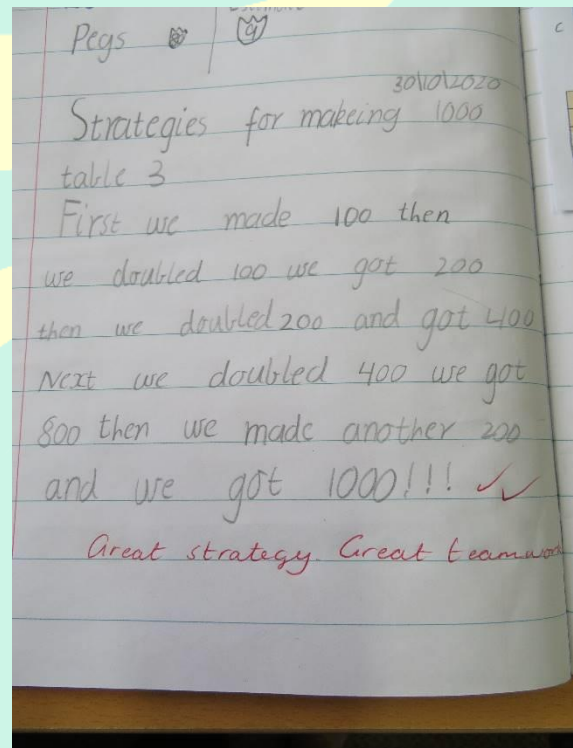 Pegs
9
30\10\2020
Strategies for makeing 1000
table 3
First we made 100 then
we doubled 100 we got 200
then we doubled 200 and got 400
Next we doubled 400 we got
800 then we made another 200
and we got 1000!!!
Great strategy. Great
c